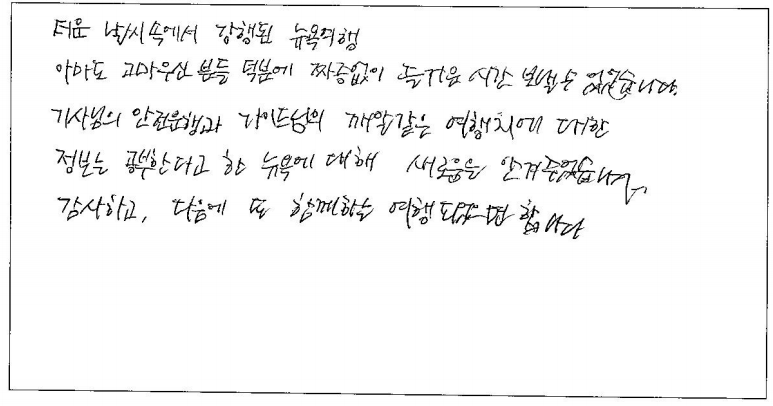 더운 날씨속에서 강행된 뉴욕여행
아마도 고마우신 분들 덕분에 짜증없이 즐거운 시간 보낼수 있었습니다.
기사님의 안전운행과 가이드님의 깨알같은 여행지에 대한
정보는 공부한다고 한 뉴욕에 대해 새로움을 안겨주었습니다.
감사하고, 다음에 또 함께하는 여행 되었으면 합니다